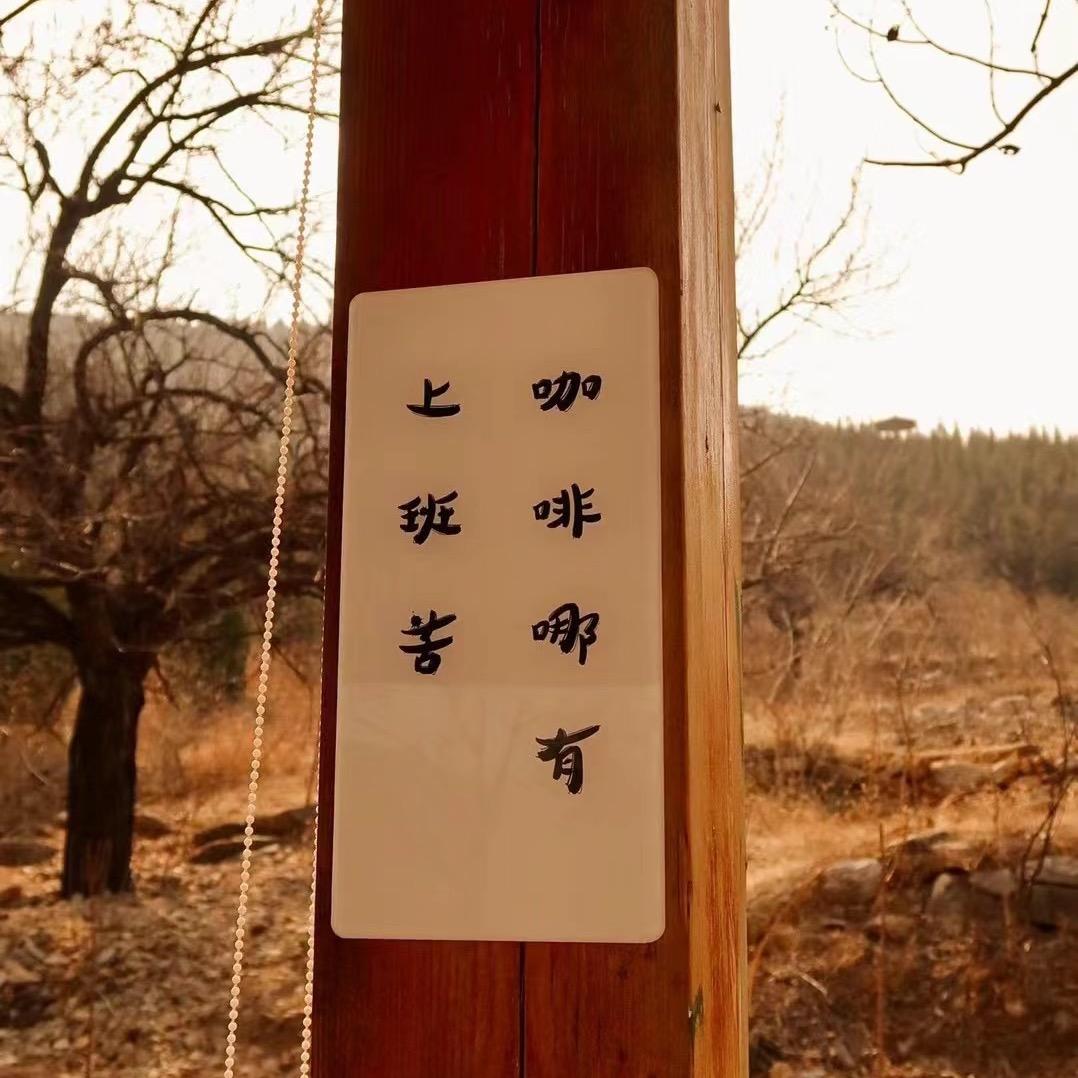 咖啡哪有
上班苦